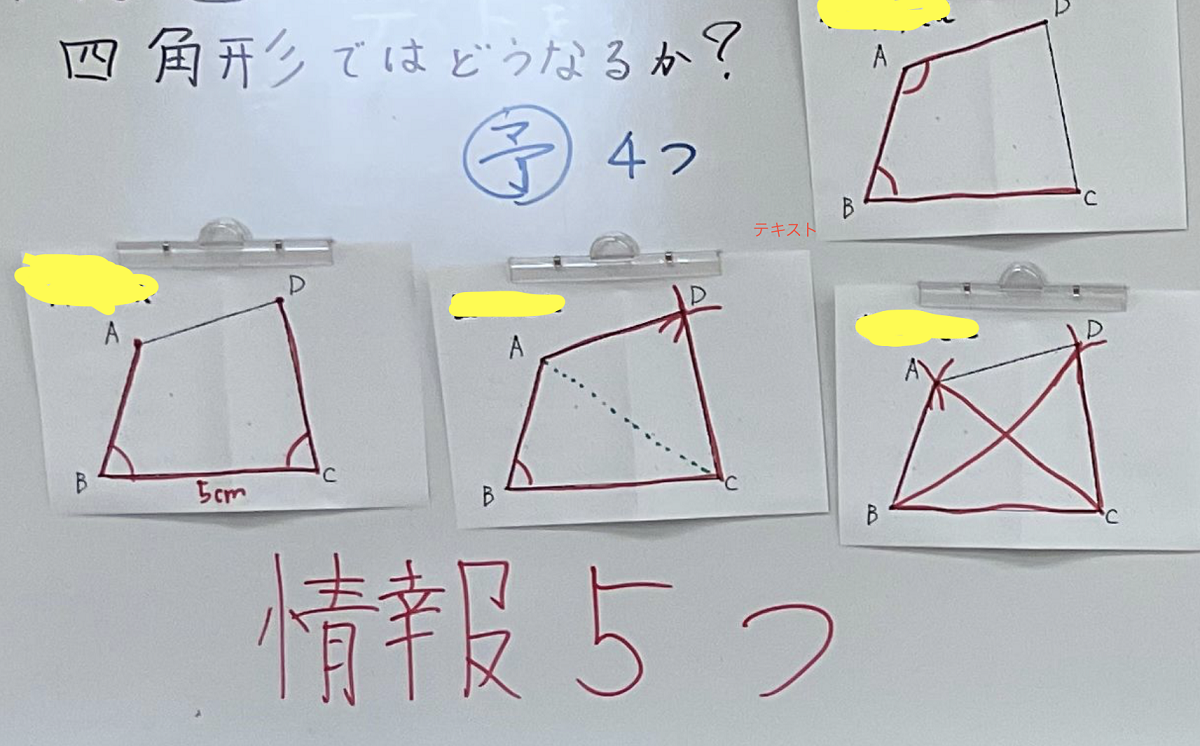 四角形ではどうなるか?
予 4つ
テキスト
D
A
B
C
D
A
B
C
5cm
D
A
B
C
D
A
B
C
情報5つ